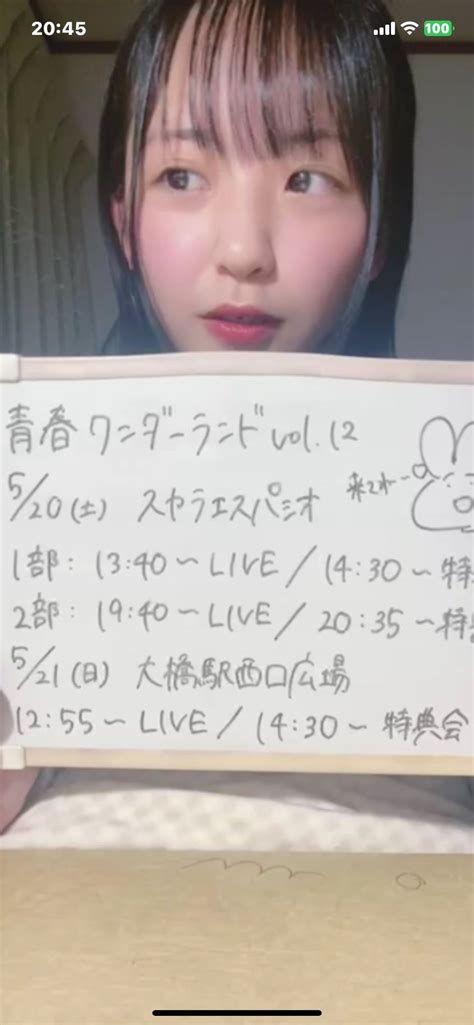 20:45
100
青春ワンダーランドvol.12
5/20(土) スカラエスパシオ
来てね〜
1部: 13:40〜LIVE/14:30〜特
2部: 19:40〜LIVE/20:35〜特
5/21(日) 大橋駅西口広場
12:55〜LIVE/14:30〜特典会